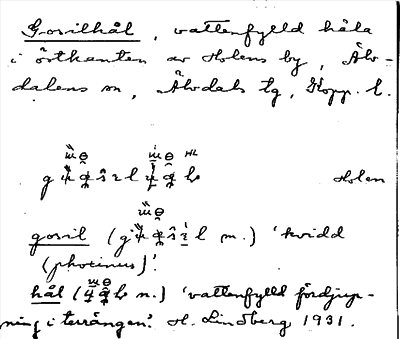 Gosilhål, vattenfylld håla
i östkanten av Holens by, Älv-
dalens sn, Älvdals tg, Kopp. l.
Holen
gosil (g m.) 'kvidd
(phoxinus)'.
hål (n.) 'vattenfylld fördjup-
ning i terrängen'. H. Lindberg 1931.